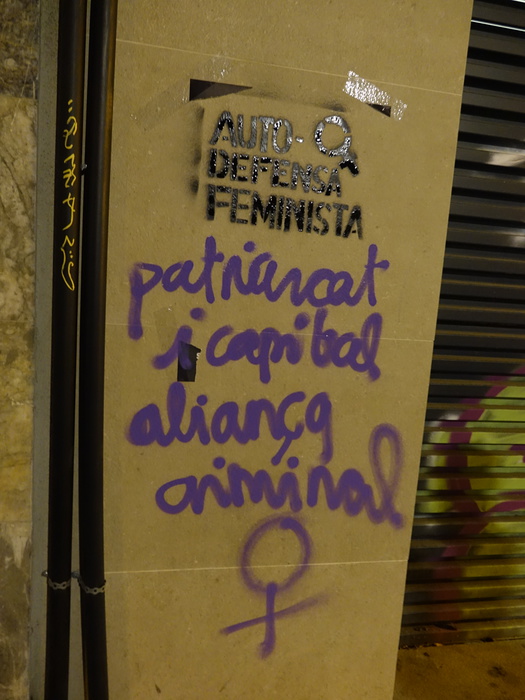 AUTO-
DEFENSA
FEMINISTA
patriarcat
i capital
aliança
criminal